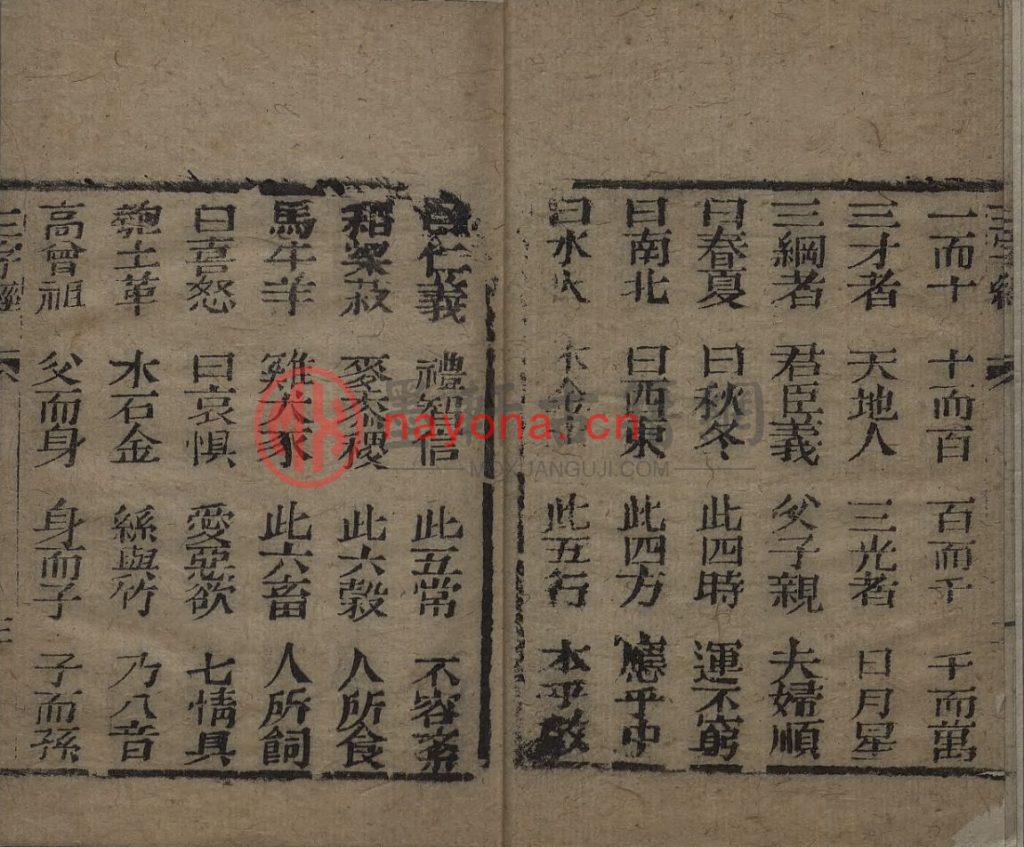 三字經
一而十 十而百 百而千 千而萬
三才者 天地人 三光者 日月星
三綱者 君臣義 父子親 夫婦順
曰春夏 曰秋冬 此四時 運不窮
曰南北 曰西東 此四方 應乎中
曰水火 木金 此五行 本乎數
曰仁義 禮智信 此五常 不容紊
稻粱菽 麥黍稷 此六穀 人所食
馬牛羊 雞犬豕 此六畜 人所飼
曰喜怒 曰哀懼 愛惡欲 七情具
匏土革 木石金 絲與竹 乃八音
高曾祖 父而身 身而子 子而孫
三字經
nayona.cn
MOXUANGUJI.COM